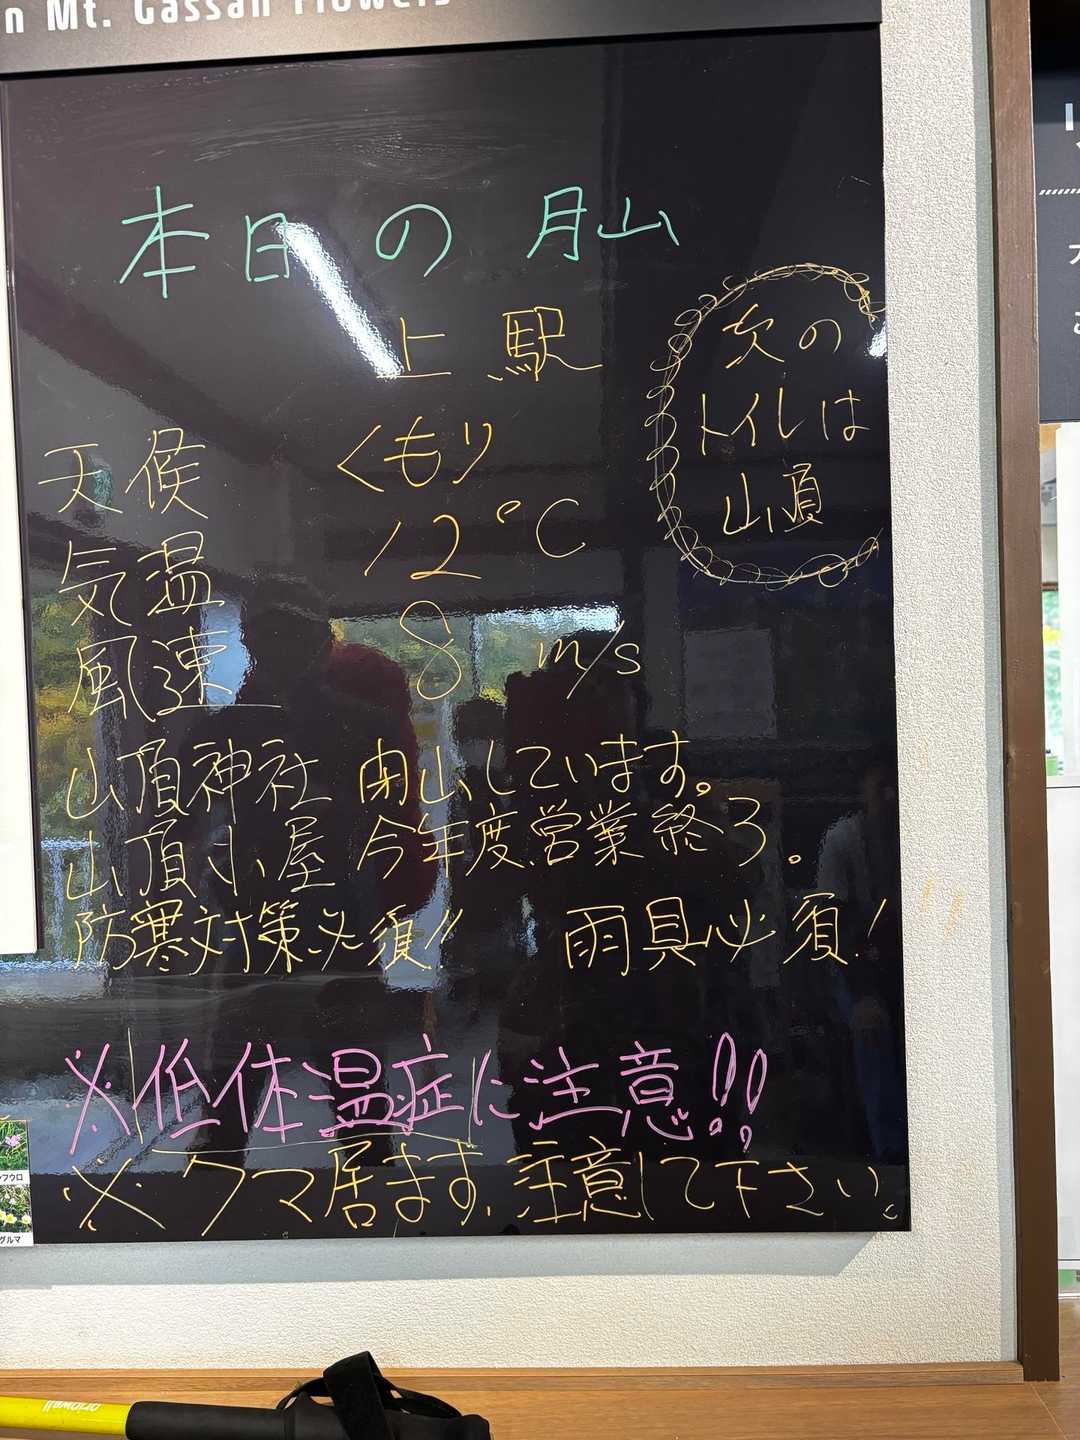 n Mt. Gassan Flowers
本日の月山
上駅
次の
トイレは
山頂
天候 くもり
気温 12℃
風速 8 m/s
山頂神社 閉山しています。
山頂小屋 今年度営業終了。
防寒対策必須!! 雨具必須!
※低体温症に注意!!
※クマ居ます、注意して下さい。
フウロ
グルマ